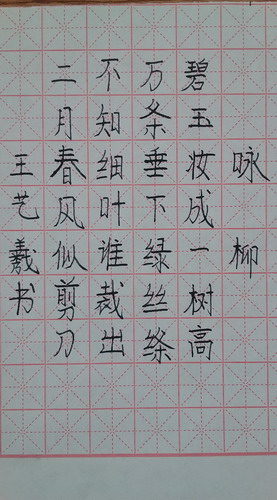 咏柳
碧玉妆成一树高
万条垂下绿丝绦
不知细叶谁裁出
二月春风似剪刀
王艺羲书